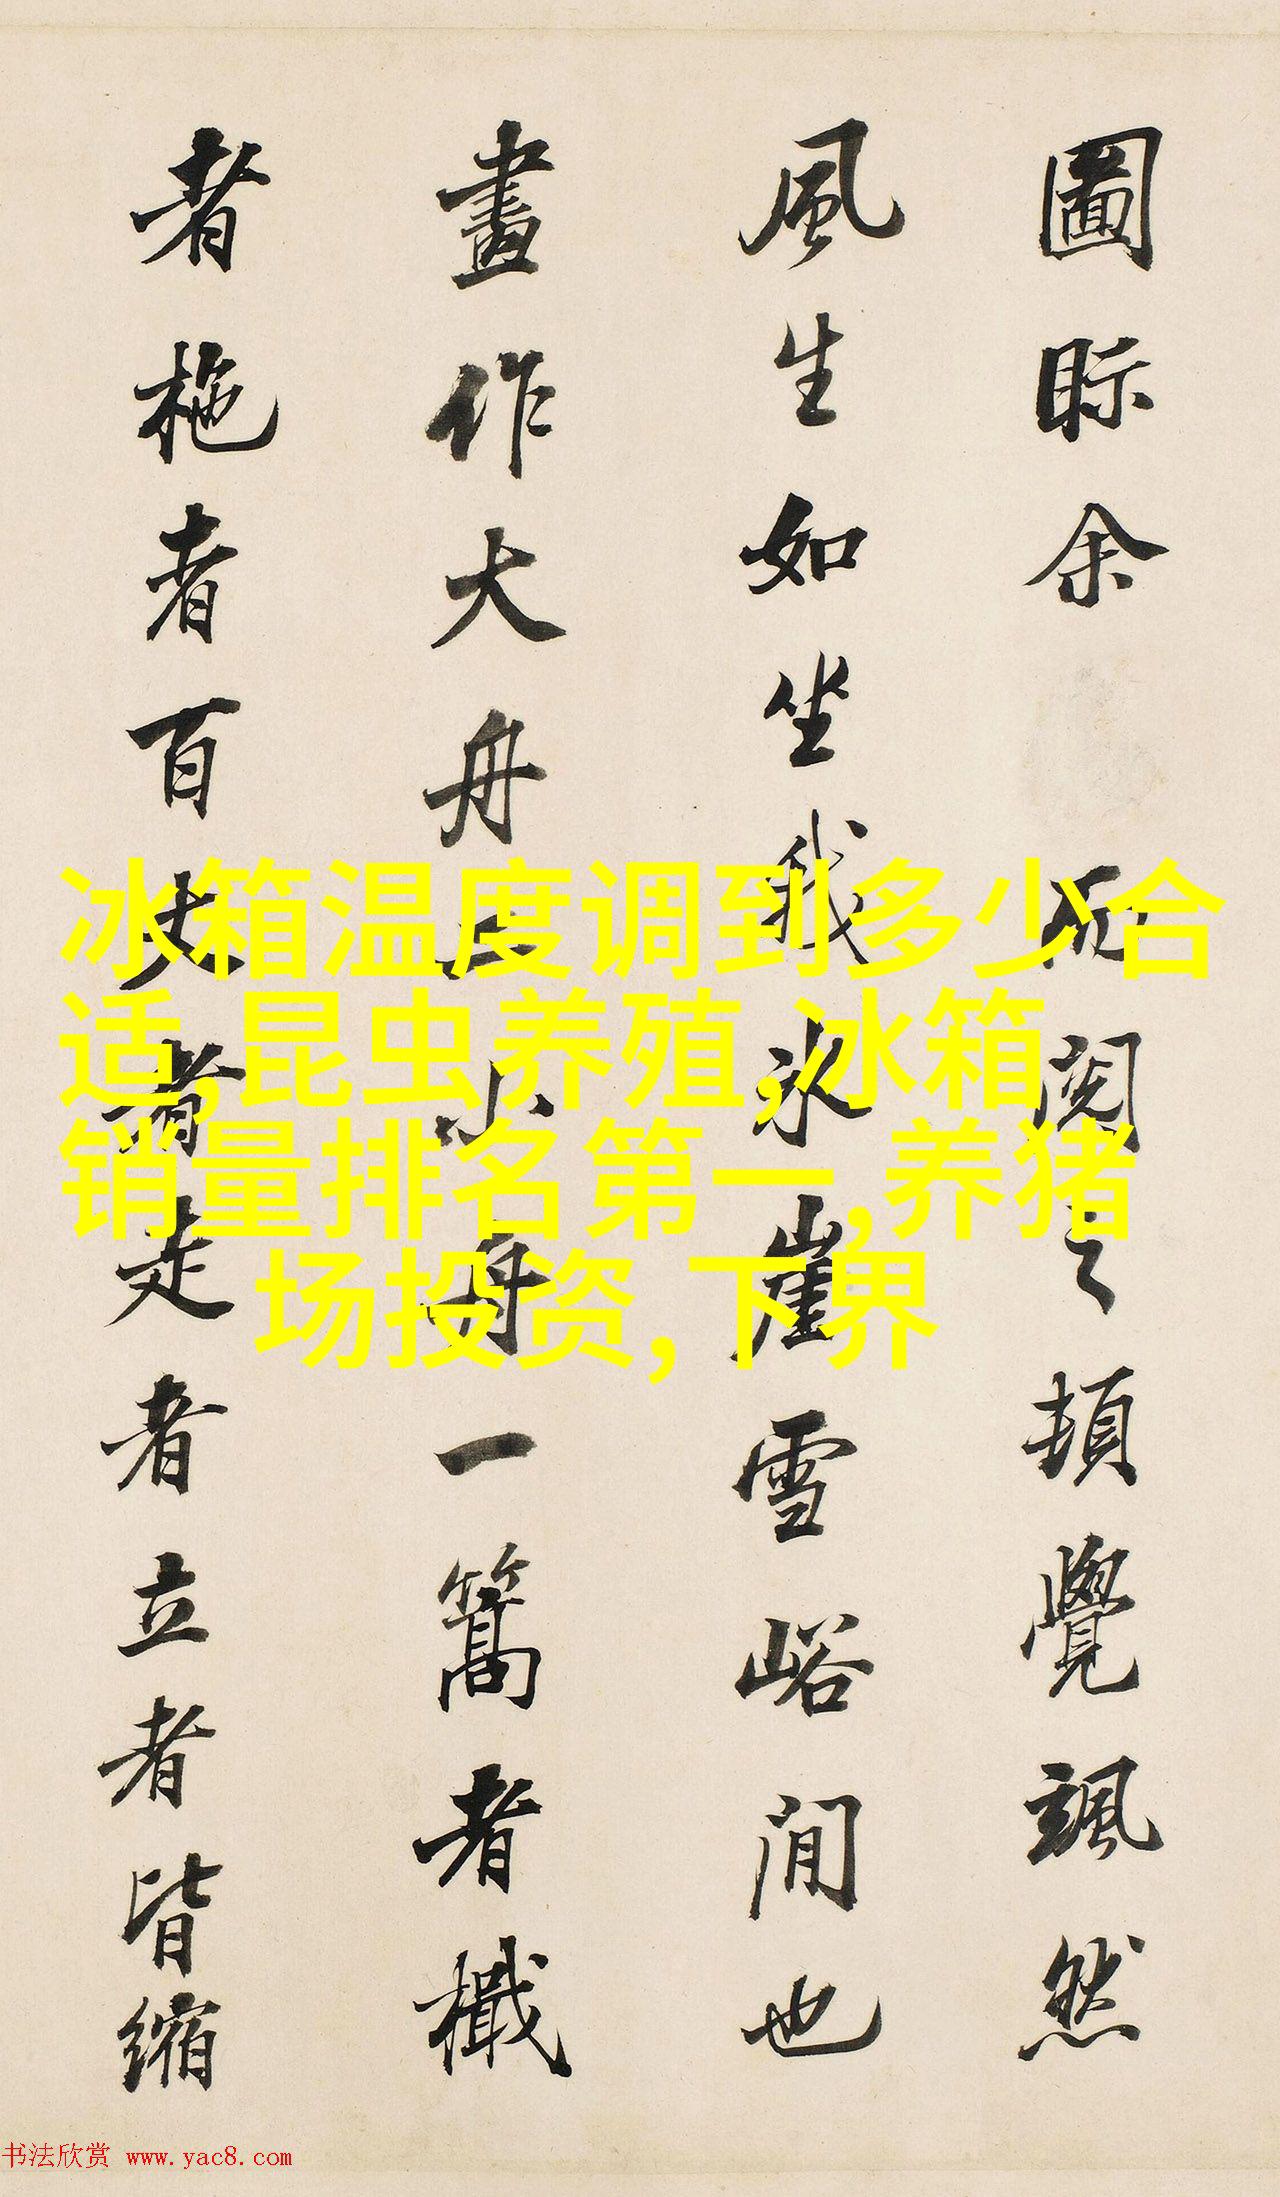 圖眎余而閱之頓覺颯然
風生如坐我冰崖雪峪間也
畫作大舟二小舟一篙者檝
者柂者百丈者走者立者皆縮
冰箱温度调到多少合
适,昆虫养殖,冰箱
销量排名第一,养猪
场投资,下界
书法欣赏 www.yac8.com